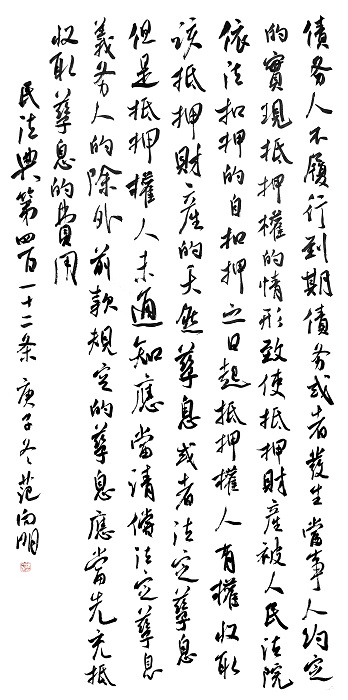 債务人不履行到期債务或者發生當事人约定
的實現抵押權的情形致使抵押財產被人民法院
依法扣押的自扣押之日起抵押權人有權收取
该抵押財產的天然孳息或者法定孳息
但是抵押權人未通知應當清償法定孳息
義务人的除外前款規定的孳息應當先充抵
收取孳息的費用
民法典第四百一十二条 庚子冬 范向明